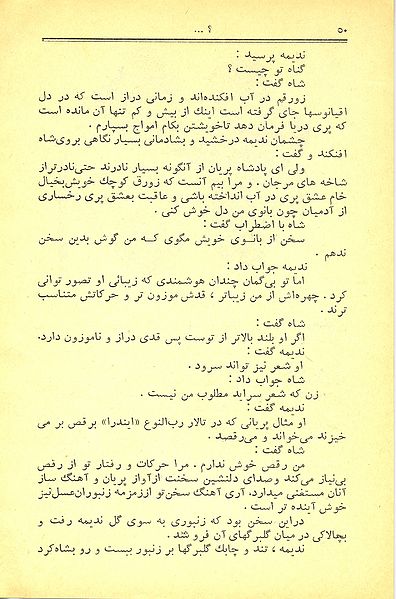 ۵۰
؟ ...
ندیمه پرسید :
گناه تو چیست ؟
شاه گفت :
زورقم در آب افکنده‌اند و زمانی دراز است که در دل
اقیانوسها جای گرفته است اینك از بیش و کم تنها آن مانده است
که پری دریا فرمان دهد تاخویشتن بکام امواج بسپارم .
چشمان ندیمه درخشید و بشادمانی بسیار نگاهی بروی‌شاه
افکند و گفت :
ولی ای پادشاه پریان از آنگونه بسیار نادرند حتی‌نادرتراز
شاخه های مرجان . و مرا بیم آنست که زورق کوچك خویش‌بخیال
خام عشق پری در آب انداخته باشی و عاقبت بعشق پری رخساری
از آدمیان چون بانوی من دل خوش کنی .
شاه با اضطراب گفت :
سخن از بانوی خویش مگوی کـه من گوش بدین سخن
ندهم .
ندیمه جواب داد :
اما تو بی‌گمان چندان هوشمندی که زیبائی او تصور توانی
کرد . چهره‌اش از من زیباتر ، قدش موزون تر و حرکاتش متناسب
ترند .
شاه گفت :
اگر او بلند بالاتر از توست پس قدی دراز و ناموزون دارد.
ندیمه گفت :
او شعر نیز تواند سرود .
شاه جواب داد :
زن که شعر سراید مطلوب من نیست .
ندیمه گفت :
او مثال پریانی که در تالار رب‌النوع «ایندرا» برقص بر می
خیزند می‌خواند و می‌رقصد .
شاه گفت :
من رقص خوش ندارم . مرا حرکات و رفتار تو از رقص
بی‌نیاز می‌کند وصدای دلنشین سخنت ازآواز پریان و آهنگ ساز
آنان مستغنی میدارد. آری آهنگ سخن‌تو اززمزمه زنبوران‌عسل‌نیز
خوش آینده تر است .
دراین سخن بود که زنبوری به سوی گل ندیمه رفت و
بچالاکی در میان گلبرگهای آن فرو شد .
ندیمه ، تند و چابك گلبرگها بر زنبور ببست و رو بشاه‌کرد